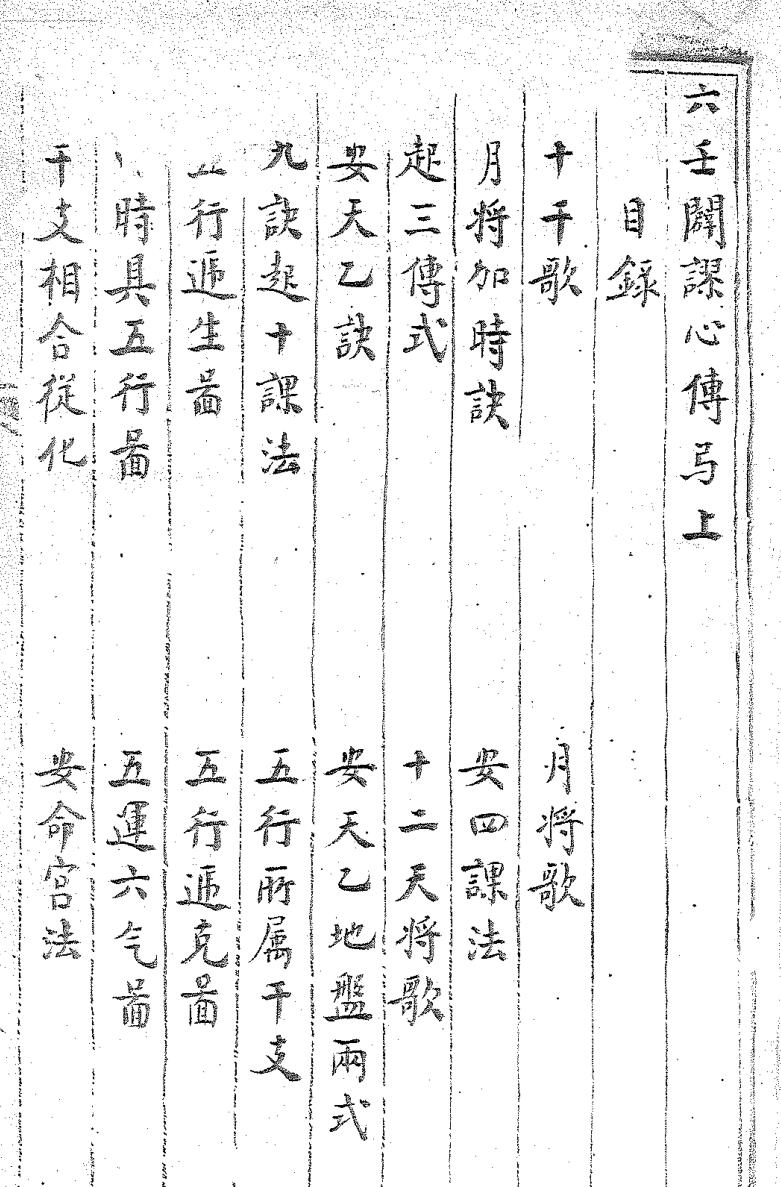 六壬闢課心傳弓上
目錄
十干歌　月将歌
月将加時訣　安四課法
起三傳式　十二天将歌
安天乙訣　安天乙地盤兩式
九訣起十課法　五行所属干支
五行遞生啚　五行遞克啚
時具五行啚　五運六气啚
干支相合從化　安命宫法